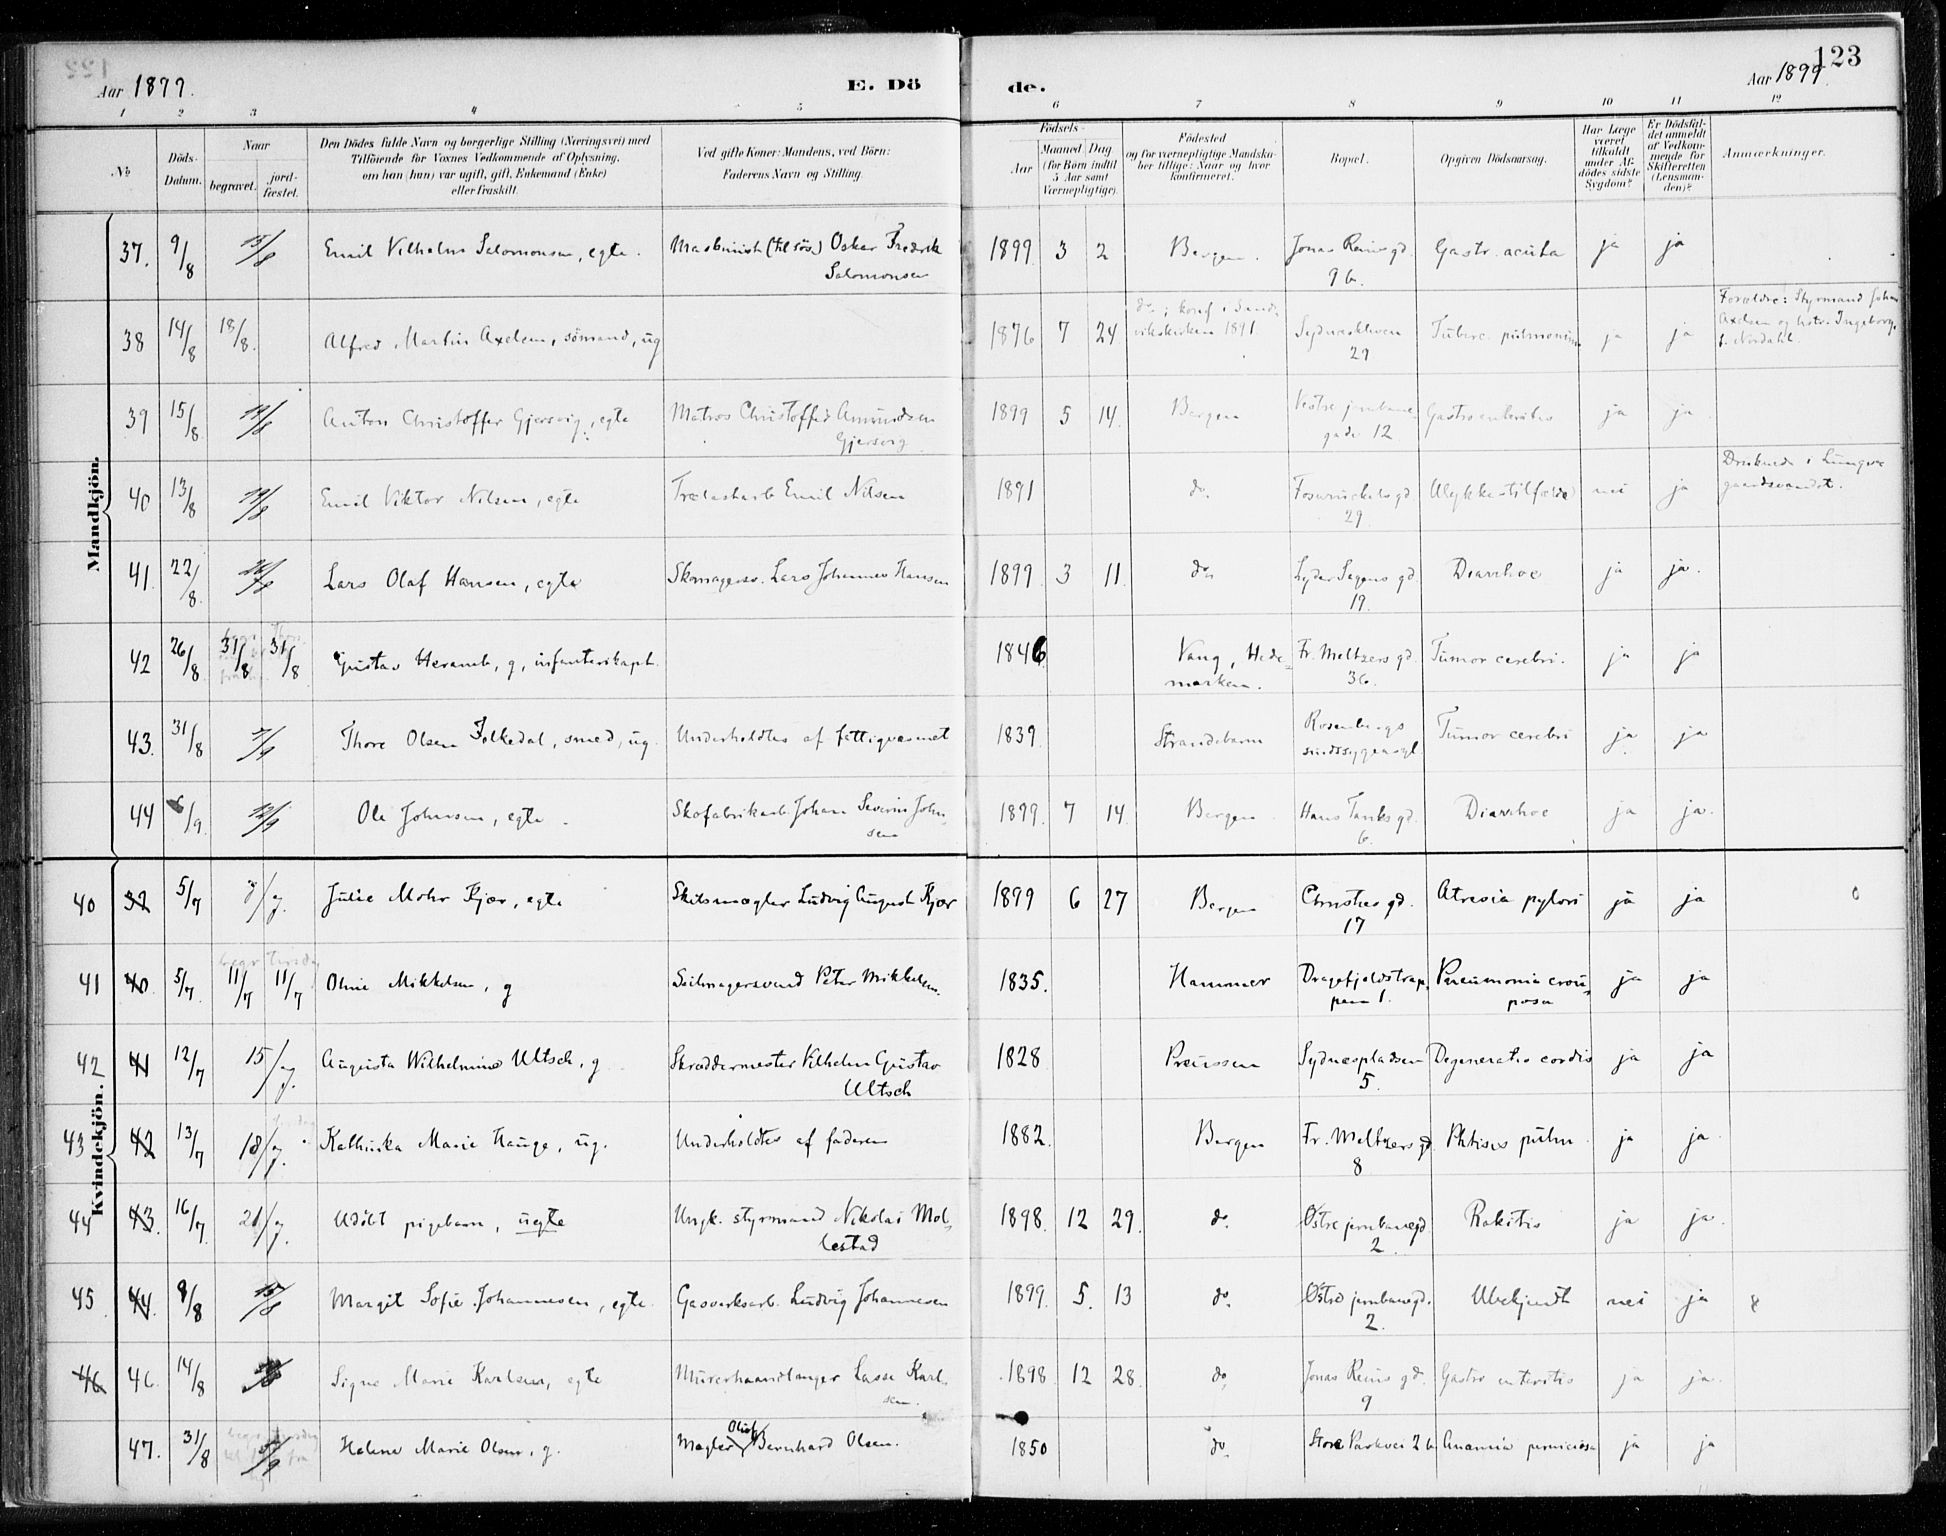 123
Aar 1899.
E. Dö
de.
Aar 1899.
1 2 3 4 5 6 7 8 9 10 11 12
No
Döds-Datum.
Naar
begravet.
jord-fæstet.
Den Dödes fulde Navn og borgerlige Stilling (Næringsvei) med
Tilföiende for Voxnes Vedkommende af Oplysning,
om han (hun) var ugift, gift, Enkemand (Enke)
eller fraskilt.
Ved gifte Koner: Mandens, ved Börn:
Faderens Navn og Stilling.
Födsels-
Aar
Maaned Dag
(for Börn indtil
5 Aar samt
Værnepligtige).
Födested
og for værnepligtige Mandska-
ber tillige: Naar og hvor
konfirmeret.
Bopæl.
Opgiven Dödsaarsag.
Har Læge
været
tilkaldt
under Af-
dödes sidste
Sygdom?
Er Dödsfal-
det anmeldt
af Vedkom-
mende for
Skifteretten
(Lensman-
den)?
Anmærkninger.
Mandkjön.
37. 9/8 15/8 Emil Vilhelm Salomonsen, egte. Maskinist (til søs) Oskar Fredrik Salomonsen 1899 3 2 Bergen. Jonas Reins gd. 9 b. Gastr. acuta ja ja
38 14/8 18/8. Alfred Martin Axelsen, sömand, ug 1876 7 24 do; konf i Sandvikskirken 1891. Sydneskleven 29 Tuberc. pulmonum ja ja Forældre: Styrmand Johan Axelsen og hstr. Ingeborg f. Nordahl.
39 15/8 19/8 Anton Christoffer Gjersvig, egte Matros Christoffer Amundsen Gjersvig 1899 5 14. Bergen Vestre jernbanegade 12 Gastroenteritis ja ja
40 13/8 19/8 Emil Viktor Nilsen, egte Trælastarb Emil Nilsen 1891 do. 29. Ulykkestilfælde nei ja Druknede i Lungegaardsvandet.
41. 22/8. 26/8 Lars Olaf Hansen, egte Skomagersv. Lars Johannes Hansen 1899 3 11. do. Lyder Sagens gd. 19. Diarrhoe ja ja.
42 26/8 31/8 31/8 Gustav Heramb, g, infanterikapt. 1846 Vang, Hedemarken. Fr. Meltzers gd. 36. Tumor cerebri. ja ja
43. 31/8 7/9 Thore Olsen Folkedal, smed, ug. Underholdtes af fattigvæsenet 1839 Strandebarm Rosenbergs sindssygeasyl Tumor cerebri ja ja
44 6/9. 12/9 Ole Johnsen, egte. Skofabrikarb Johan Severin Johnsen 1899. 7 14. Bergen. Hans Tanks gd. 6. Diarrhoe ja ja.
Kvindekjön.
40 32 5/7 8/7. Julie Mohr Kjær, egte Skibsmægler Ludvig August Kjær 1899 6 27 Bergen Christies gd. 17 Atresia pylori ja ja
41 40. 5/7. 11/7 11/7 Oline Mikkelsen, g Seilmagersvend Peter Mikkelsen. 1835. Hammer Dragefjeldstrappen 1. Pneumonia crouposa ja ja
42 41 12/7 15/7. Augusta Wilhelmine Ultsch, g Skræddermester Vilhelm Gustav Ultsch 1828 Preussen Sydnæspladsen 5. Degeneratio cordis ja ja
43 42 13/7 18/7. Kathinka Marie Hauge, ug. Underholdtes af faderen 1882. Bergen Fr. Meltzers gd 8 Phtisis pulm. ja ja.
44 43. 16/7. 21/7. Udöbt pigebarn, uegte Ungk. styrmand Nikolai Mollestad 1898. 12 29. do. Østre jernbanegd. 2. Rakitis ja ja.
45 44. 9/8 15/8 Margit Sofie Johannesen, egte. Gasverksarb. Ludvig Johannesen 1899. 5. 13 do. Østre jernbanegd. 2. Ubekjendt nei ja
46 46. 14/8 Signe Marie Karlsen, egte Murerhaandlanger Lasse Karlsen. 1898 12 28. do. Jonas Reins gd. 9 Gastro enteritis ja ja.
47. 31/8 5/9 Helene Marie Olsen, g. Mægler Oluf Bernhard Olsen. 1850 do. Store Parkvei 2 b Anæmia perniciosa ja ja